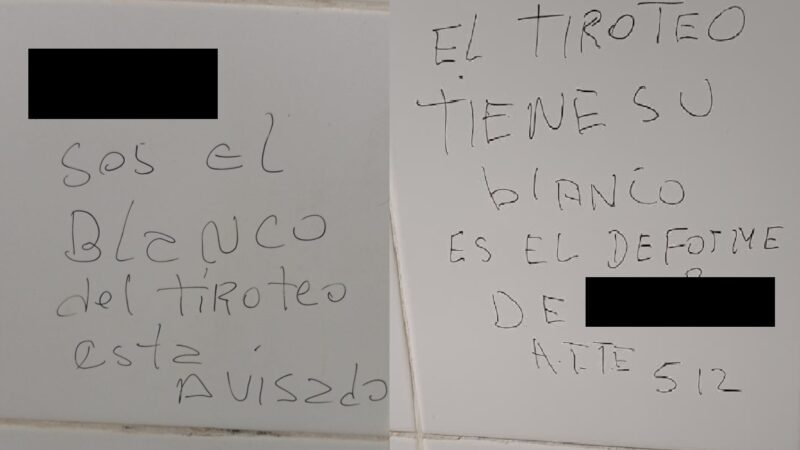 sos el
BLaNCO
del TIROTEO
esta
AVISADO
EL TIROTEO
TIENE SU
blANCO
ES EL DEFORME
DE
A.T.TE 512